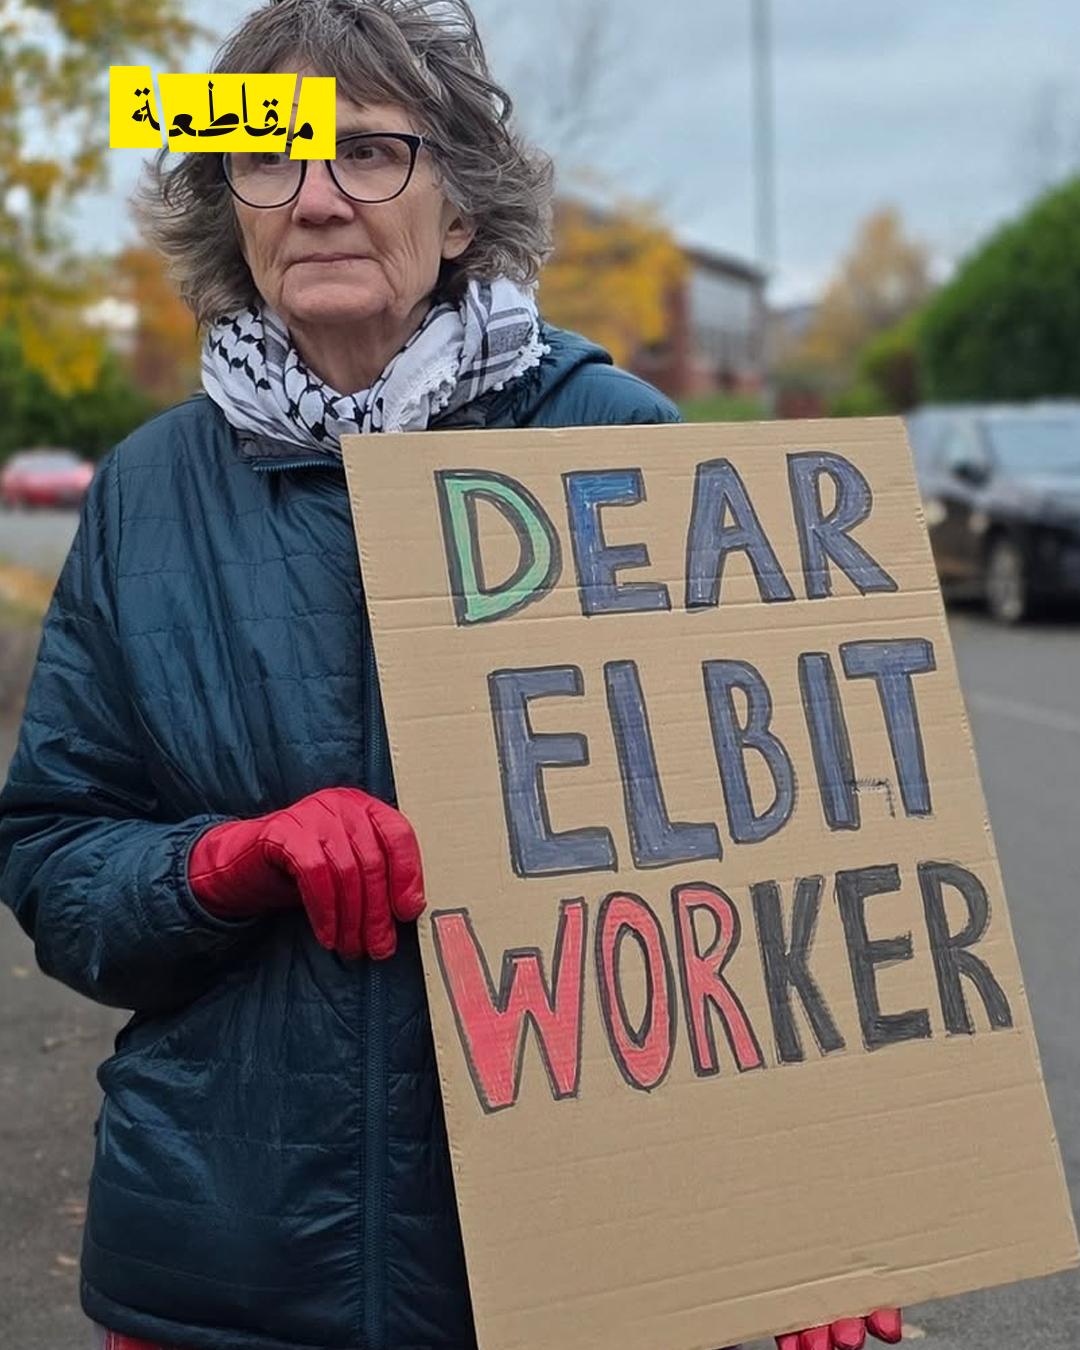 مقاطعة
DEAR
ELBIT
WORKER